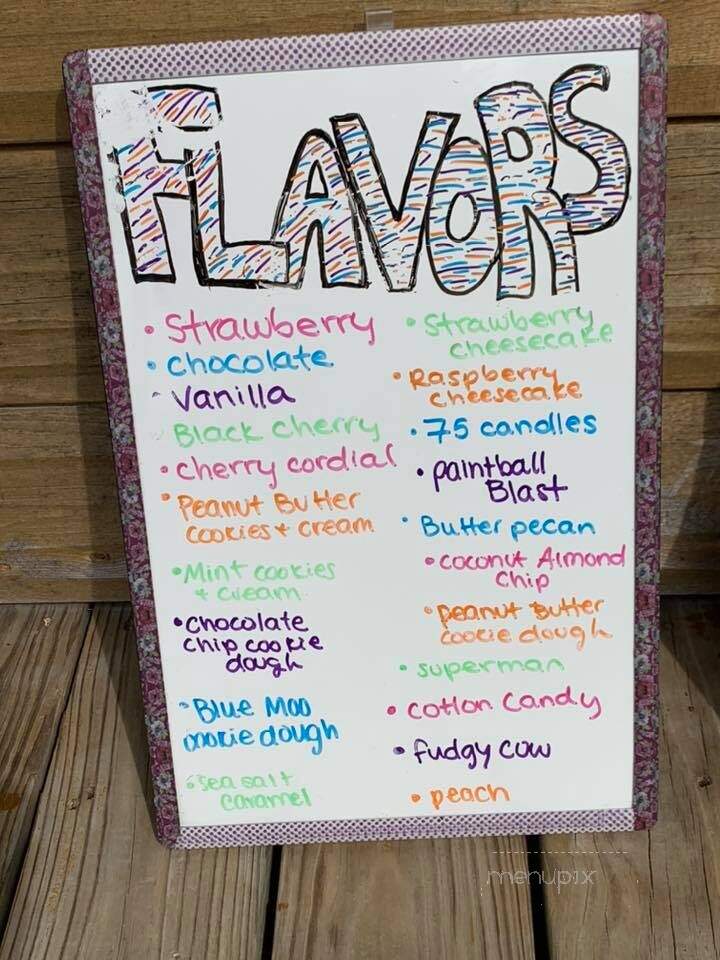 FLAVORS
• Strawberry
• chocolate
- Vanilla
Black cherry
• cherry cordial
• Peanut Butter
cookies + cream
• Mint cookies
+ cream
• Chocolate
chip cookie
dough
• Blue Moo
cookie dough
• sea salt
caramel
• Strawberry
cheesecake
• Raspberry
cheesecake
• 75 candles
• paintball
Blast
• Butter pecan
• coconut Almond
Chip
• peanut butter
cookie dough
• superman
• cotton candy
• fudgy cow
• peach
menupix